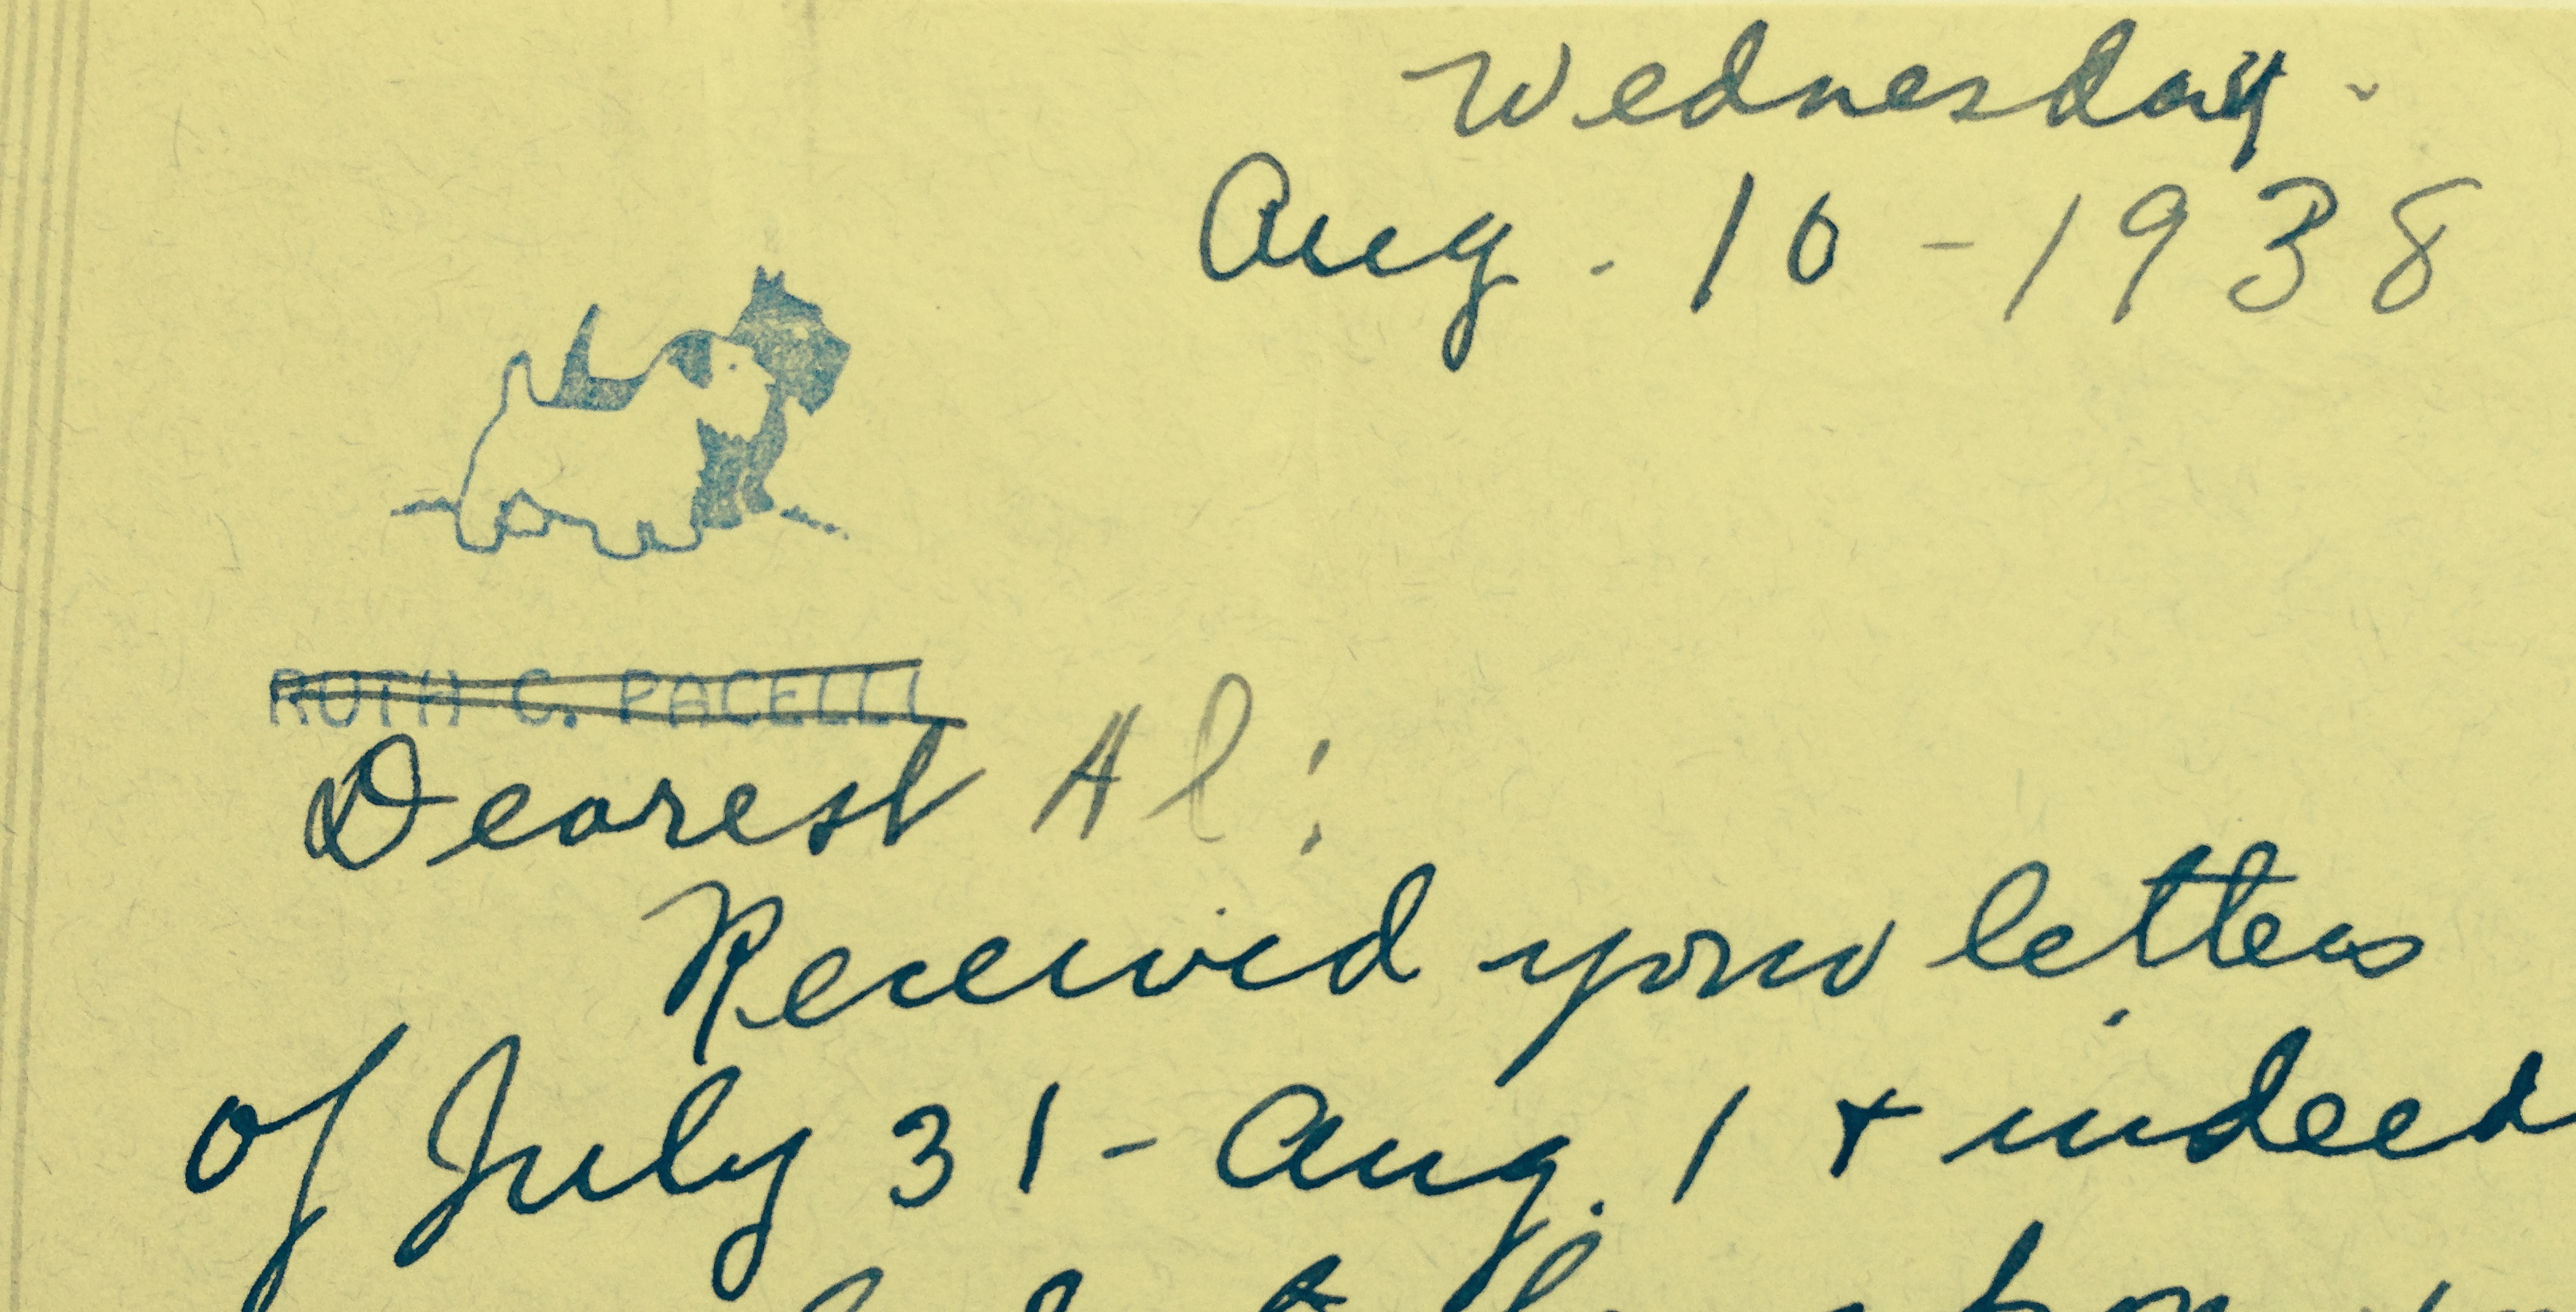 Wednesday -
Aug. 10 - 1938
RUTH C. PACELLI
Dearest Al:
Received your letters
of July 31 - Aug. 1 + indeed